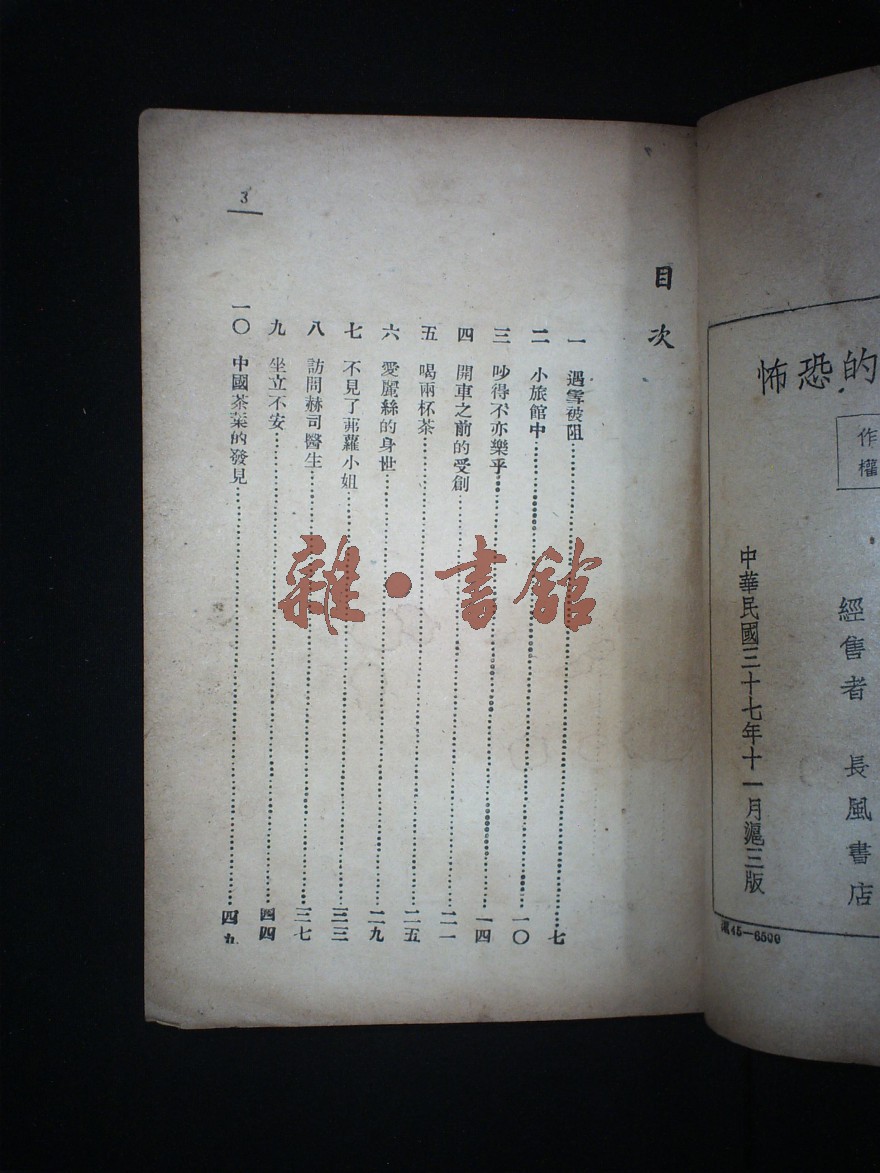 的恐怖
作
權
經售者 長風書店
中華民國三十七年十一月滬三版
45—6500
3
目次
一 遇雪被阻 七
二 小旅館中 一〇
三 吵得不亦樂乎 一四
四 開車之前的受創 二一
五 喝兩杯茶 二五
六 愛麗絲的身世 二九
七 不見了菲蘿小姐 三三
八 訪問赫司醫生 三七
九 坐立不安 四四
一〇 中國茶葉的發見 四九
雜·書館